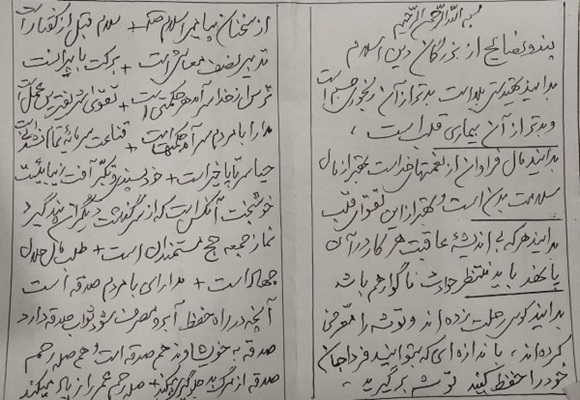 بسم الله الرحمن الرحیم
پند و نصایح از بزرگان دین اسلام
بدانید تهیدستی بلا است بدتر از آن رنجوری جسم است
و بدتر از آن بیماری قلب است،
بدانید مال فراوان از نعمتهای خداست بهتر از مال
سلامت بدن است و بهتر از این تقوای قلب
بدانید هر که بی اندیشهٔ عاقبت هر کار در آن
پا نهد باید منتظر حوادث ناگوار هم باشد
بدانید کوس رحلت زده اند و توشه را معرفی
کرده اند، باندازه ای که بتوانید فردا جان
خود را حفظ کنید توشه برگیرید
از سخنان پیامبر اسلام ص + سلام قبل از گفتار است
تدبیر نصف معاش است + برکت با پیرانست
ترس از خدا سرآمد هر حکمتی است +
مدارا با مردم سرآمد حکمتها است + قناعت سرمایهٔ تمام نشدنی است
حیا سرتاپا خیر است + خودپسندی و تکبر آفت زیبائیست
خوشبخت آنکس است که از سرگذشت دیگران پند گیرد
نماز جمعه حج مستمندان است + طلب مال حلال
جهاد است + مدارای با مردم صدقه است
آنچه در راه حفظ آبرو مصرف شود ثواب صدقه دارد
صدقه به خویشاوند هم صدقه است و هم صله رحم
صدقه از مرگ بد جلوگیری میکند + صله رحم عمر را زیاد میکند